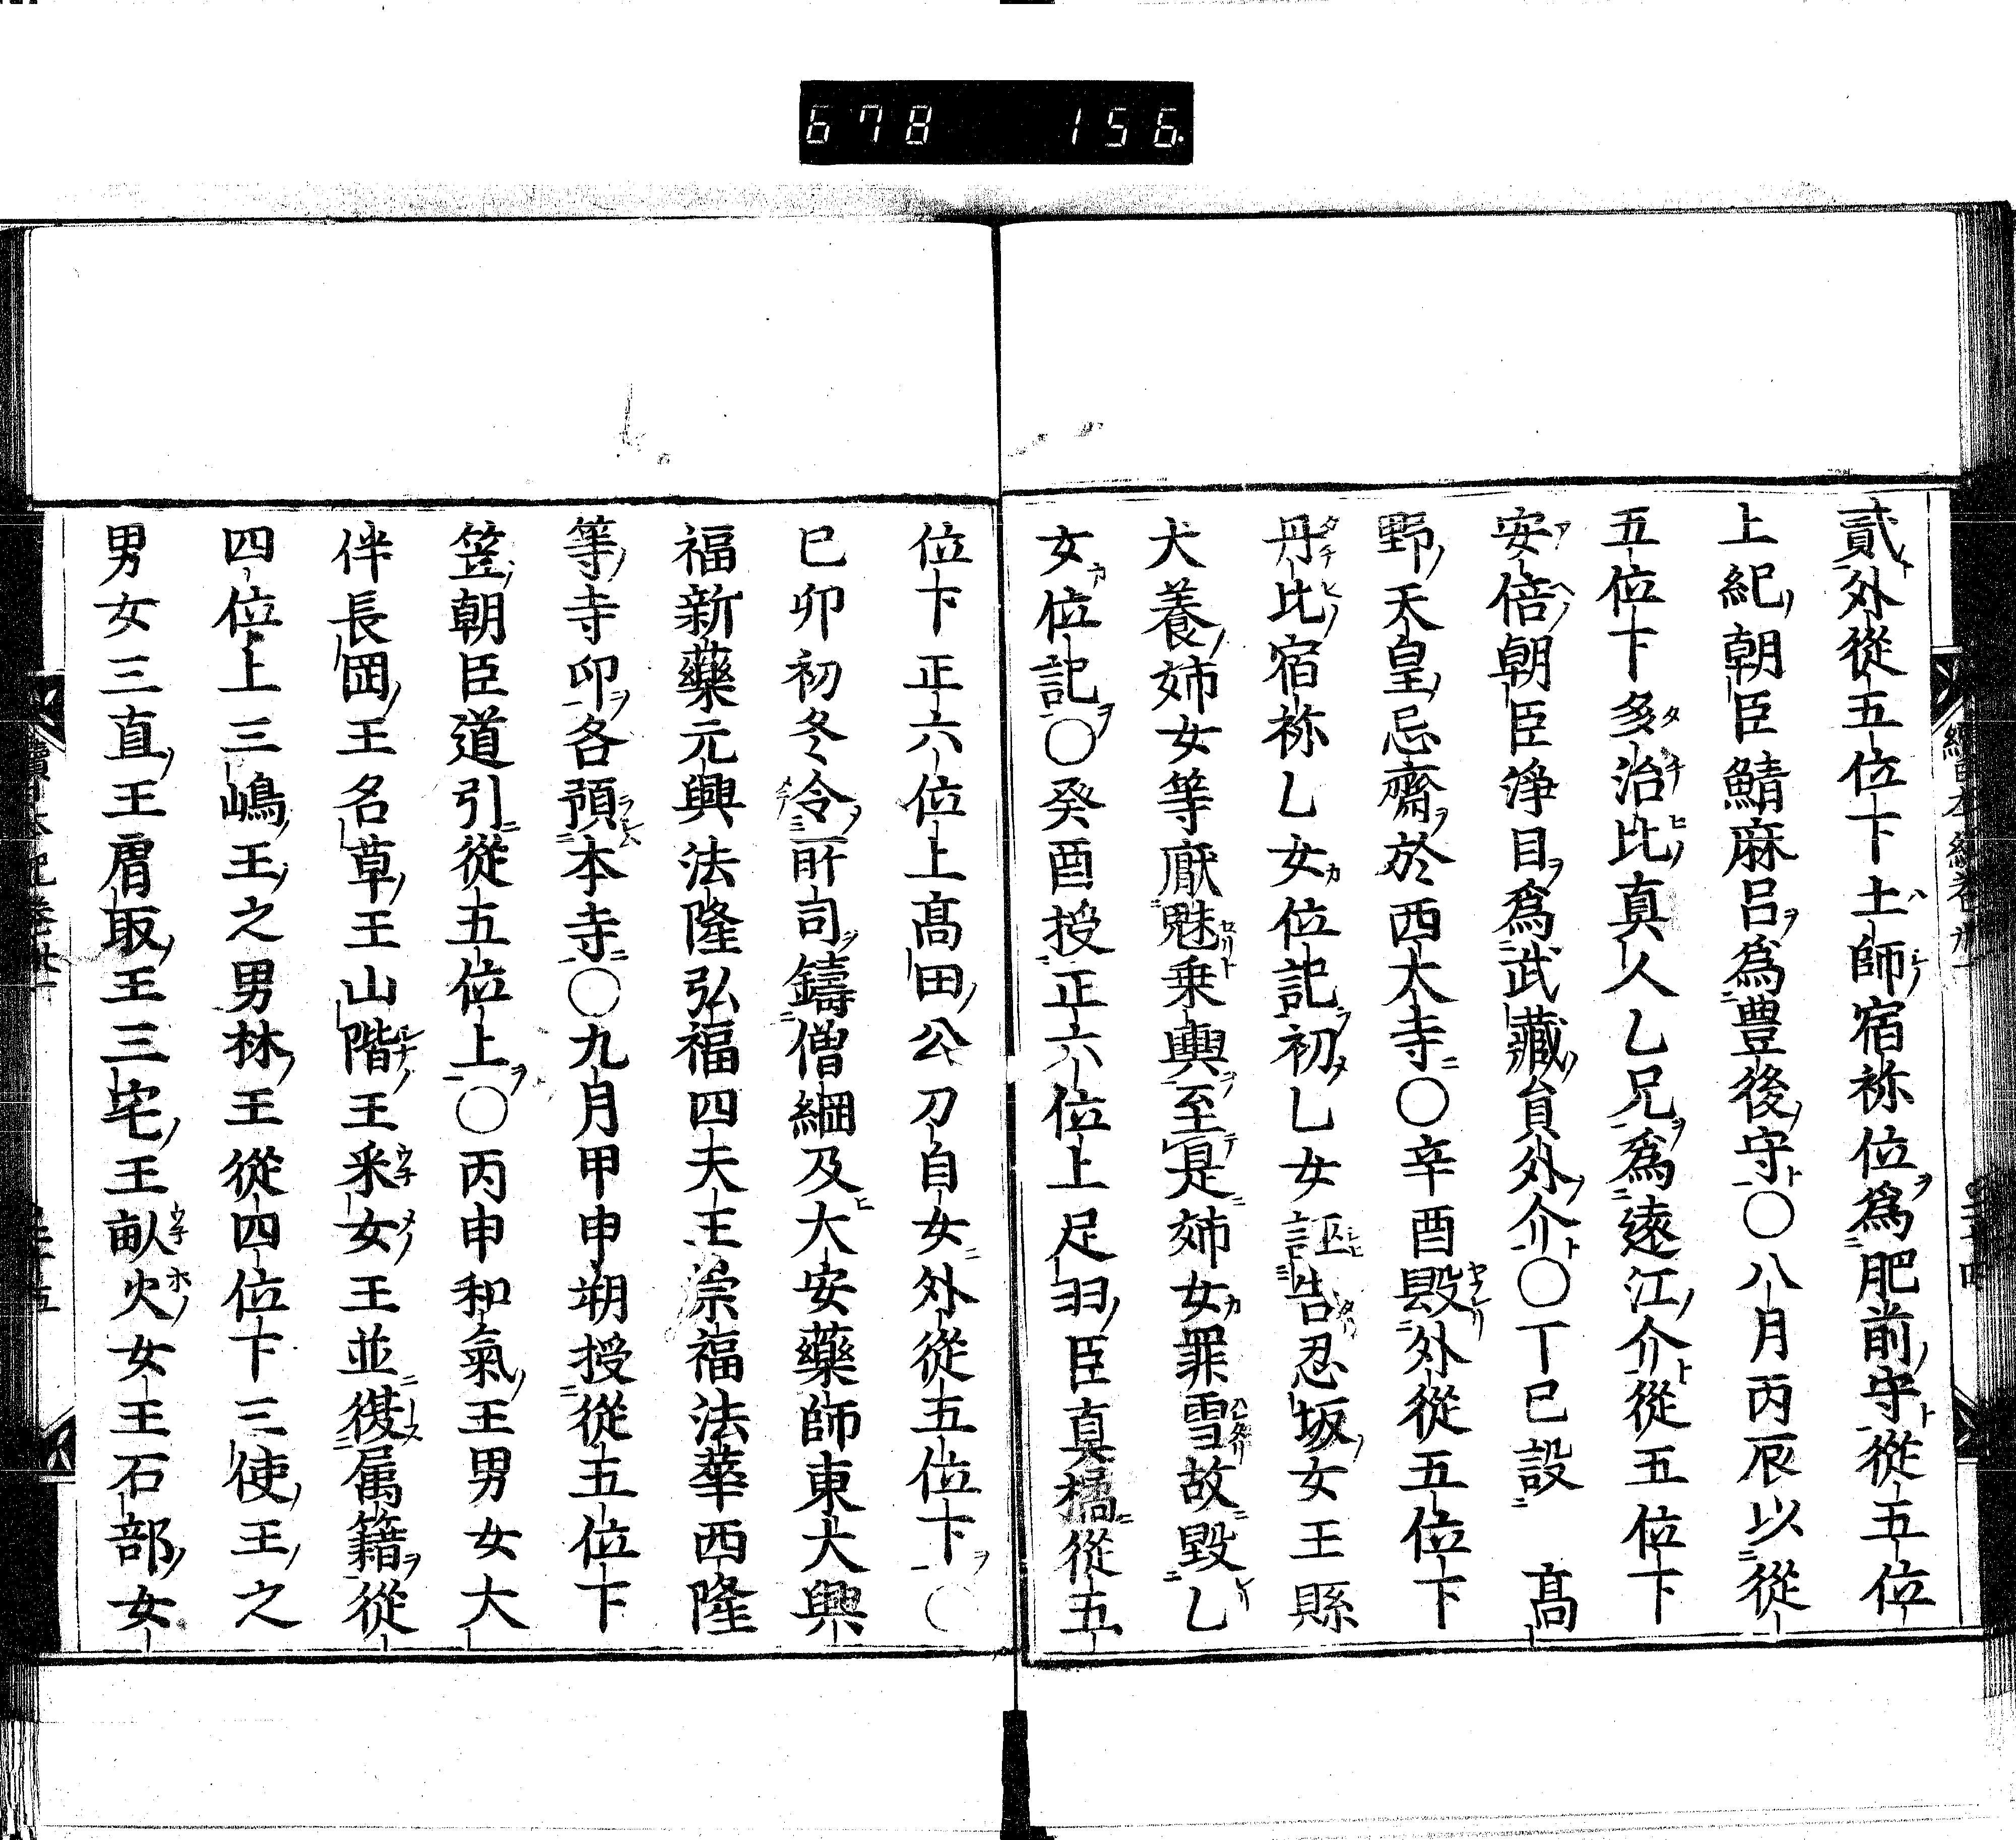 678 156.
貳外從五位下土師宿祢位爲肥前守從五位
上紀朝臣鯖麻呂爲豊後守○八月丙辰以從
五位下多治比真人乙兄爲遠江介從五位下
安倍朝臣淨目爲武藏員外介○丁巳設 髙
野天皇忌齋於西大寺○辛酉毀外從五位下
丹比宿祢乙女位記初乙女誣告忍坂女王縣
犬養姉女等厭魅乗輿至是姉女罪雪故毀乙
女位記○癸酉授正六位上足羽臣真橘從五
位下正六位上髙田公刀自女外從五位下○
己卯初冬令所司鑄僧綱及大安藥師東大興
福新藥元興法隆弘福四天王崇福法華西隆
等寺印各預本寺○九月甲申朔授從五位下
笠朝臣道引從五位上○丙申和氣王男女大
伴長岡王名草王山階王采女王並復属籍從
四位上三嶋王之男林王從四位下三使王之
男女三直王庸取王三宅王畝火女王石部女